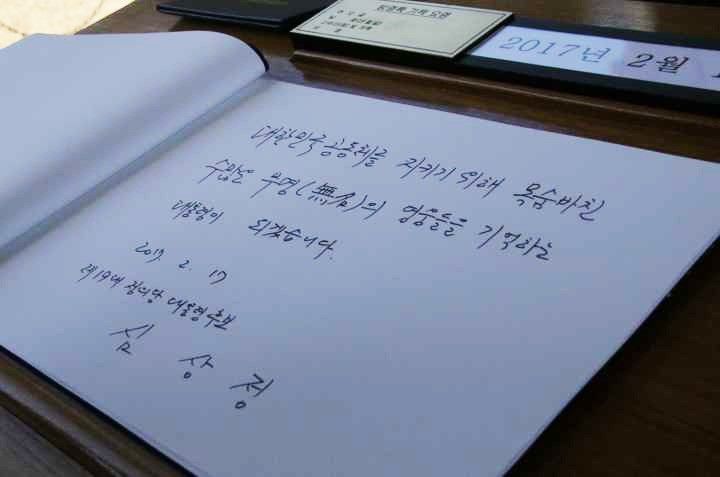 2017년 2월 1
대한민국 공동체를 지키기 위해 목숨바친
수많은 무명(無名)의 영웅들을 기억하는
대통령이 되겠습니다.
2017. 2. 17
제19대 정의당 대통령후보
심 상 정